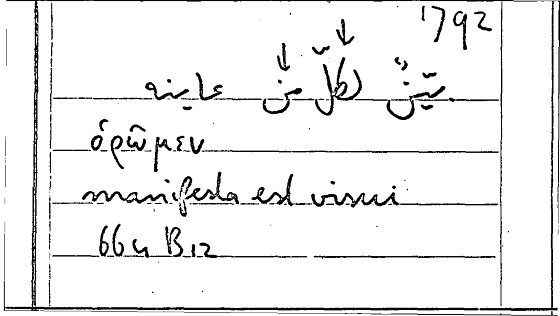 1792
بيّنٌ لكلّ من عاينه
ὁρῶμεν
manifesta est visui
664 B12